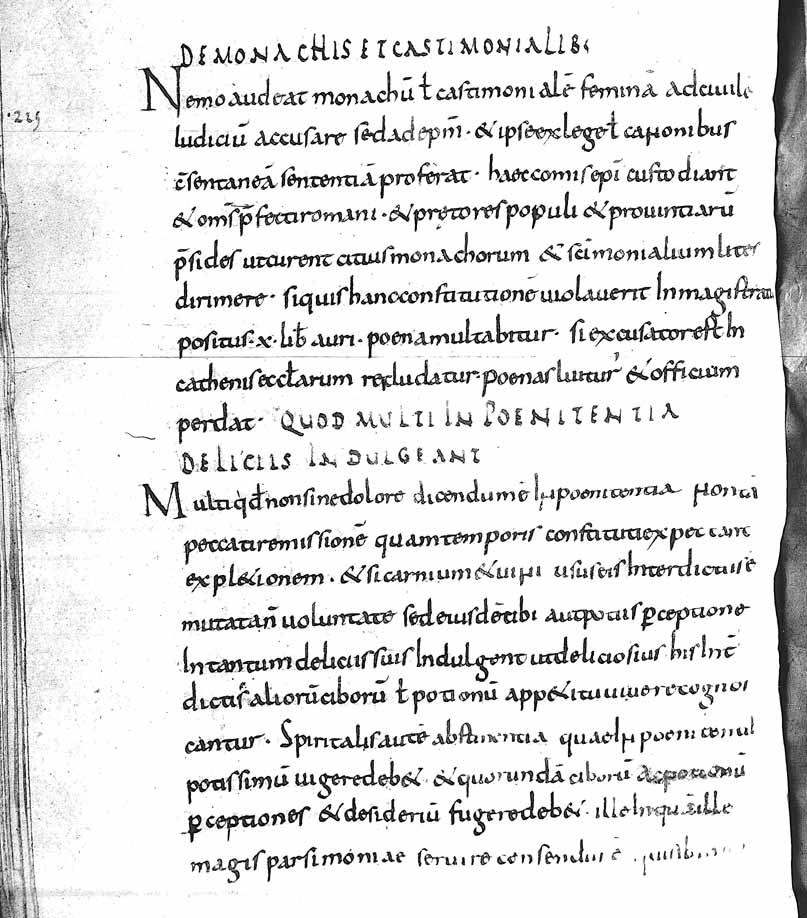 DE MONACHIS ET CASTIMONIALIB;
229
Nemo audeat monachū ł castimonialē feminā ad civile
Iudiciū accusare sed ad epm̄ · & ipse ex lege ł canonibus
c̄sentaneā sententiā proferat · haec comis epī custodiant
& oms̄ p̄fecti romani · & pretores populi & provintiarū
p̄sides ut curent citius monachorum & sc̄imonialium lites
dirimere · si quis hanc constitutionē violaverit In magistratu
positus · x · lib̄ auri · poena multabitur · si excusator est In
cathenis eccłarum recludatur · poenas luitur' & officium
perdat · QUOD MULTI IN POENITENTIA
DELICIIS INDULGEANT
Multi qđ non sine dolore dicendum ē In poenitentia non tā
peccati remissionē quam temporis constituti expectant
expl&ionem · & si carnium & vini usus eis Interdictus ē
mutatā n̄ voluntate sed eiusdē cibi aut potius p̄ceptione
In tantum deliciis suis Indulgent ut deliciosius his Int̄
dictis aliorū ciborū ł potionū app&itu vivere cognos
cantur · Spiritalis autē abstinentia quae In poenitentib
potissimū vigere deb& & quorundā ciborū ac potionū
p̄ceptiones & desideriū fugere deb& · ille Inquā ille
magis parsimoniae servire consendus ē